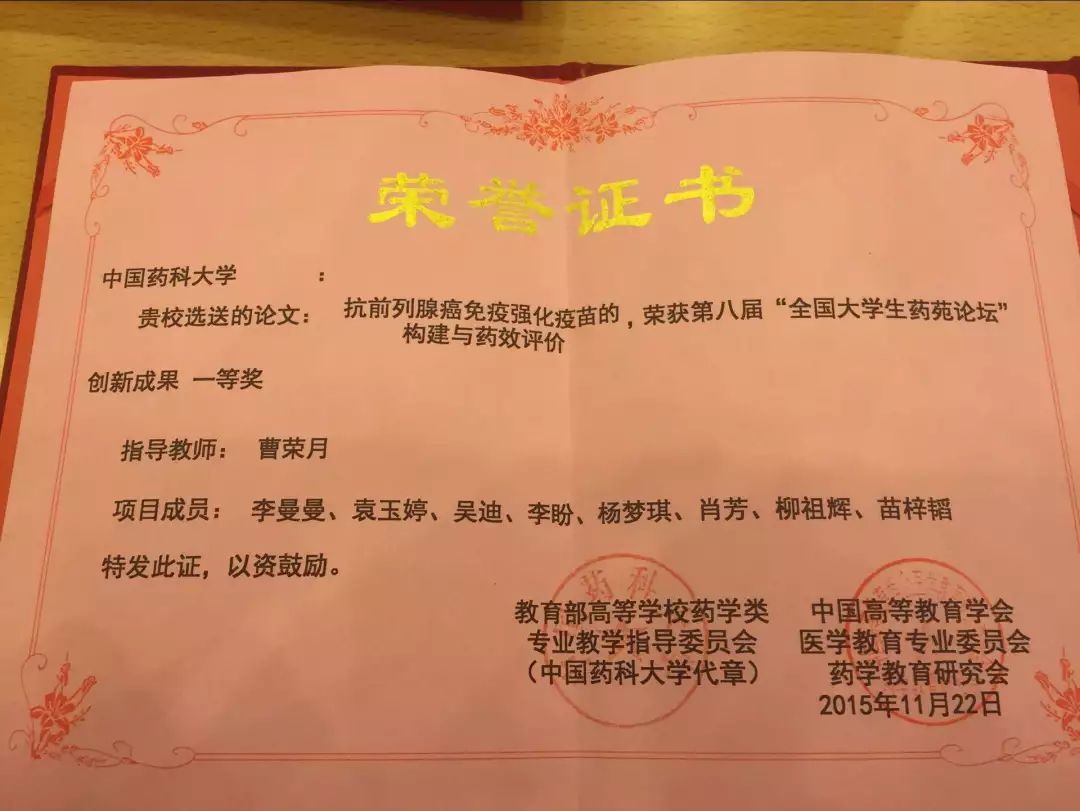 荣誉证书
中国药科大学 :
贵校选送的论文: 抗前列腺癌免疫强化疫苗的, 荣获第八届“全国大学生药苑论坛”
构建与药效评价
创新成果 一等奖
指导教师: 曹荣月
项目成员: 李曼曼、袁玉婷、吴迪、李盼、杨梦琪、肖芳、柳祖辉、苗梓韬
特发此证,以资鼓励。
药科
教育部高等学校药学类
专业教学指导委员会
(中国药科大学代章)
中国高等教育学会
医学教育专业委员会
药学教育研究会
2015年11月22日